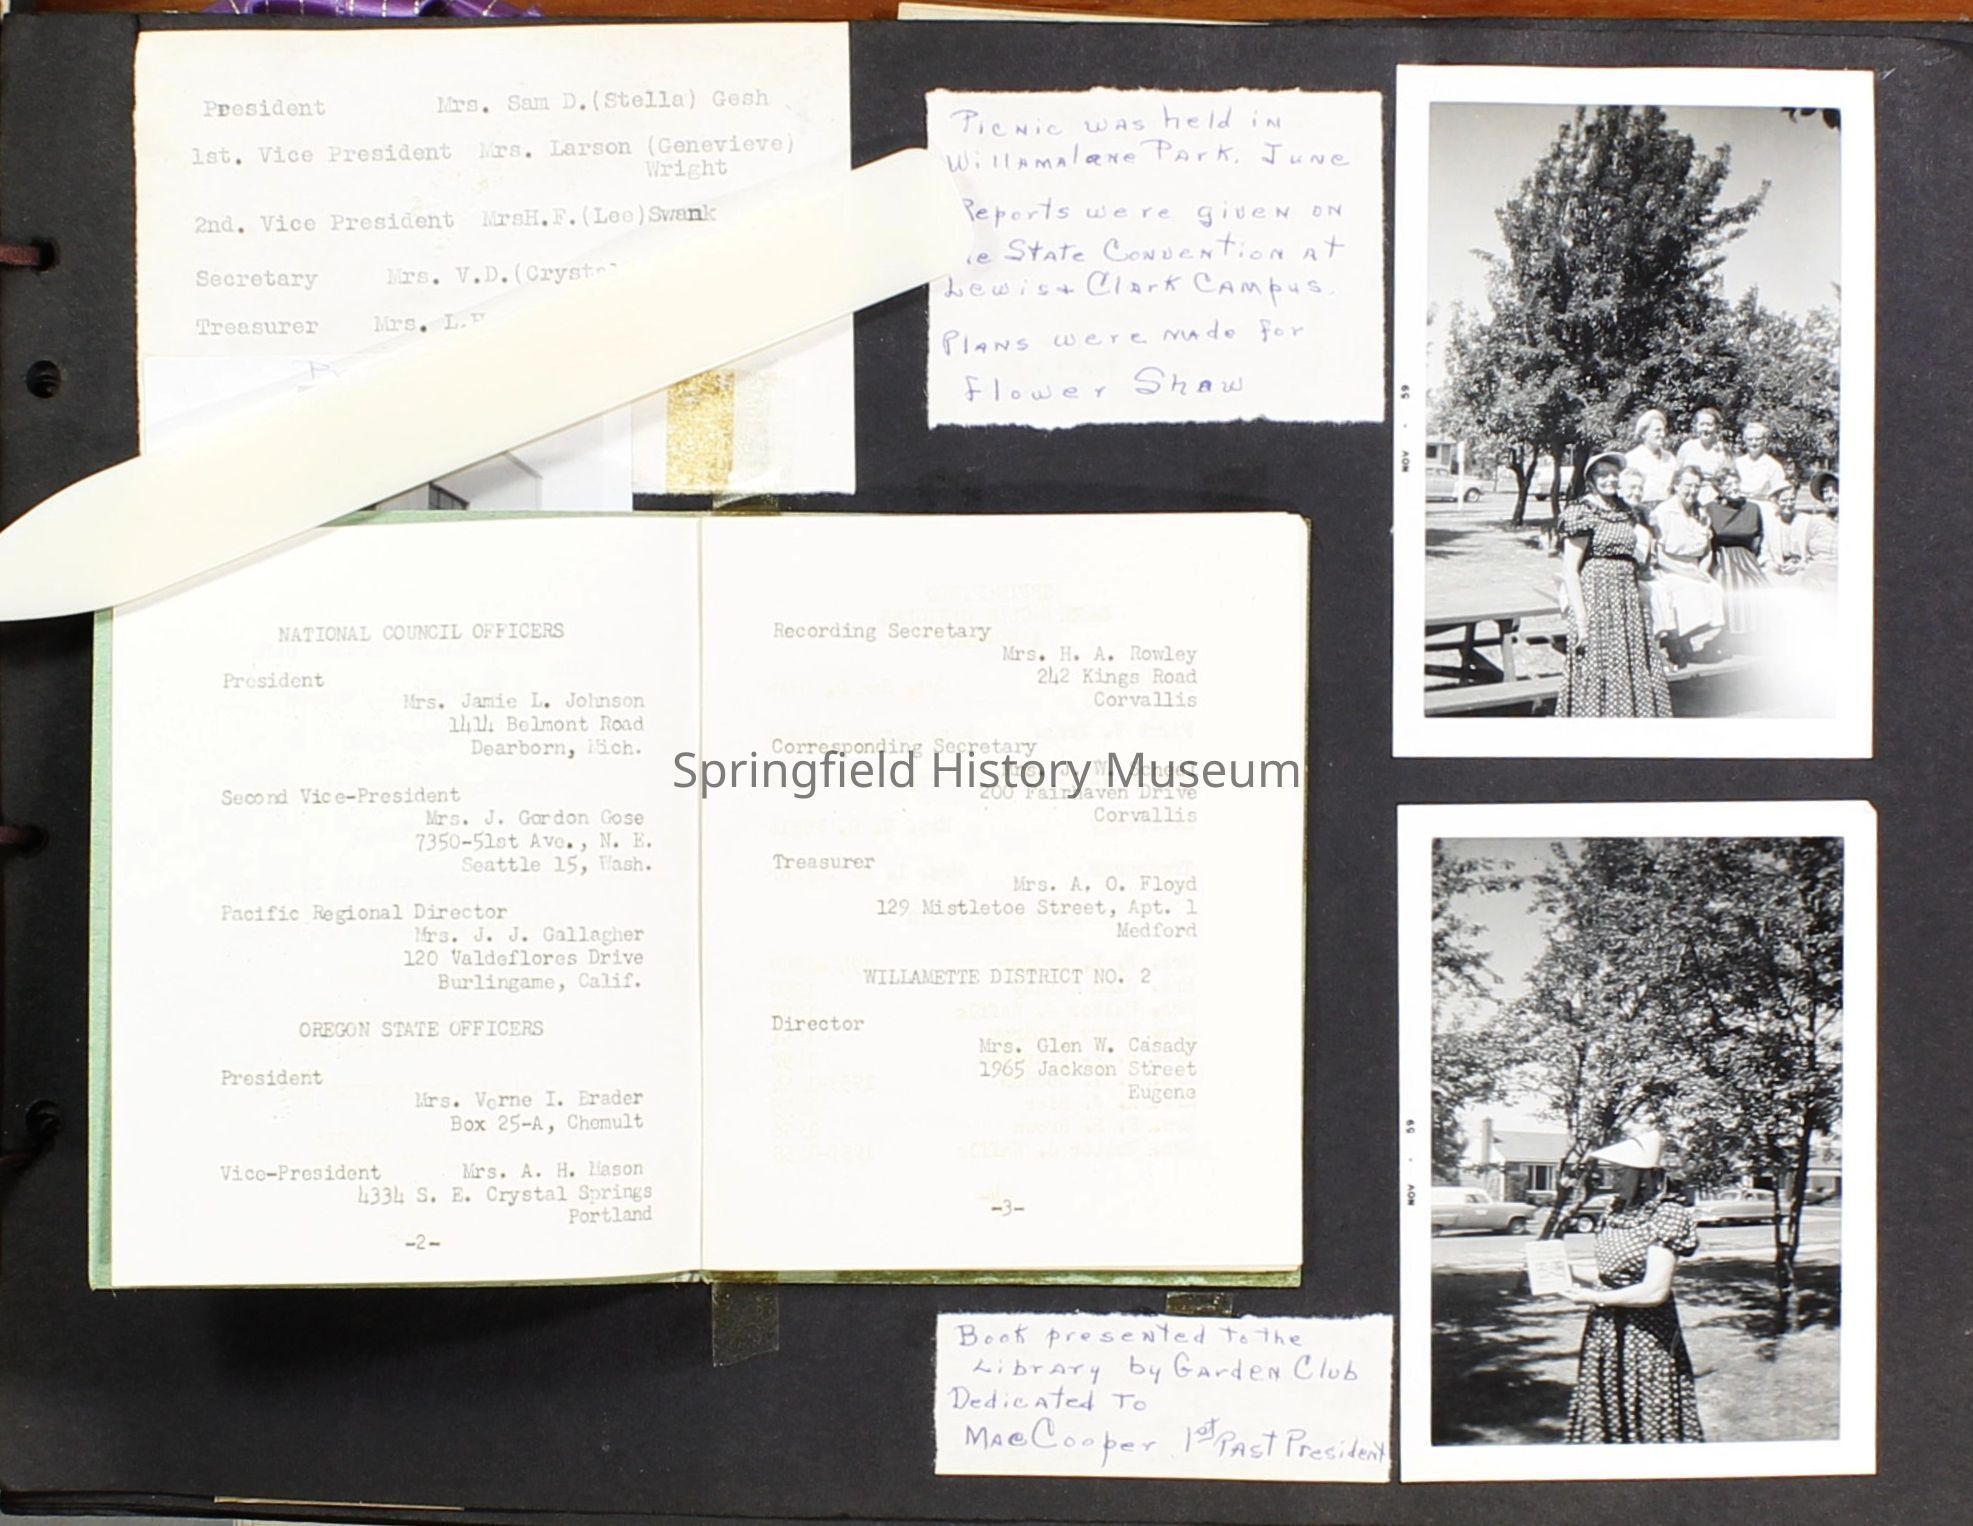 President Mrs. Sam D.(Stella) Gesh
1st. Vice President Mrs. Larson (Genevieve)
Wright
2nd. Vice President MrsH.F.(Lee)Swank
Secretary Mrs. V.D.(Cryst
Treasurer Mrs. L.
Picnic was held in
Willamalane Park. June
Reports were given on
e State Convention at
Lewis + Clark Campus.
Plans were made for
Flower Show
NOV • 59
NATIONAL COUNCIL OFFICERS
President
Mrs. Jamie L. Johnson
1414 Belmont Road
Dearborn, Mich.
Second Vice-President
Mrs. J. Gordon Gose
7350-51st Ave., N. E.
Seattle 15, Wash.
Pacific Regional Director
Mrs. J. J. Gallagher
120 Valdeflores Drive
Burlingame, Calif.
OREGON STATE OFFICERS
President
Mrs. Verne I. Brader
Box 25-A, Chemult
Vice-President Mrs. A. H. Mason
4334 S. E. Crystal Springs
Portland
-2-
Recording Secretary
Mrs. H. A. Rowley
242 Kings Road
Corvallis
Corresponding Secretary
Mrs. J. W. Scheel
200 Fairhaven Drive
Corvallis
Treasurer
Mrs. A. O. Floyd
129 Mistletoe Street, Apt. 1
Medford
WILLAMETTE DISTRICT NO. 2
Director
Mrs. Glen W. Casady
1965 Jackson Street
Eugene
-3-
Springfield History Museum
NOV • 59
Book presented to the
Library by Garden Club
Dedicated To
Mae Cooper 1st Past President